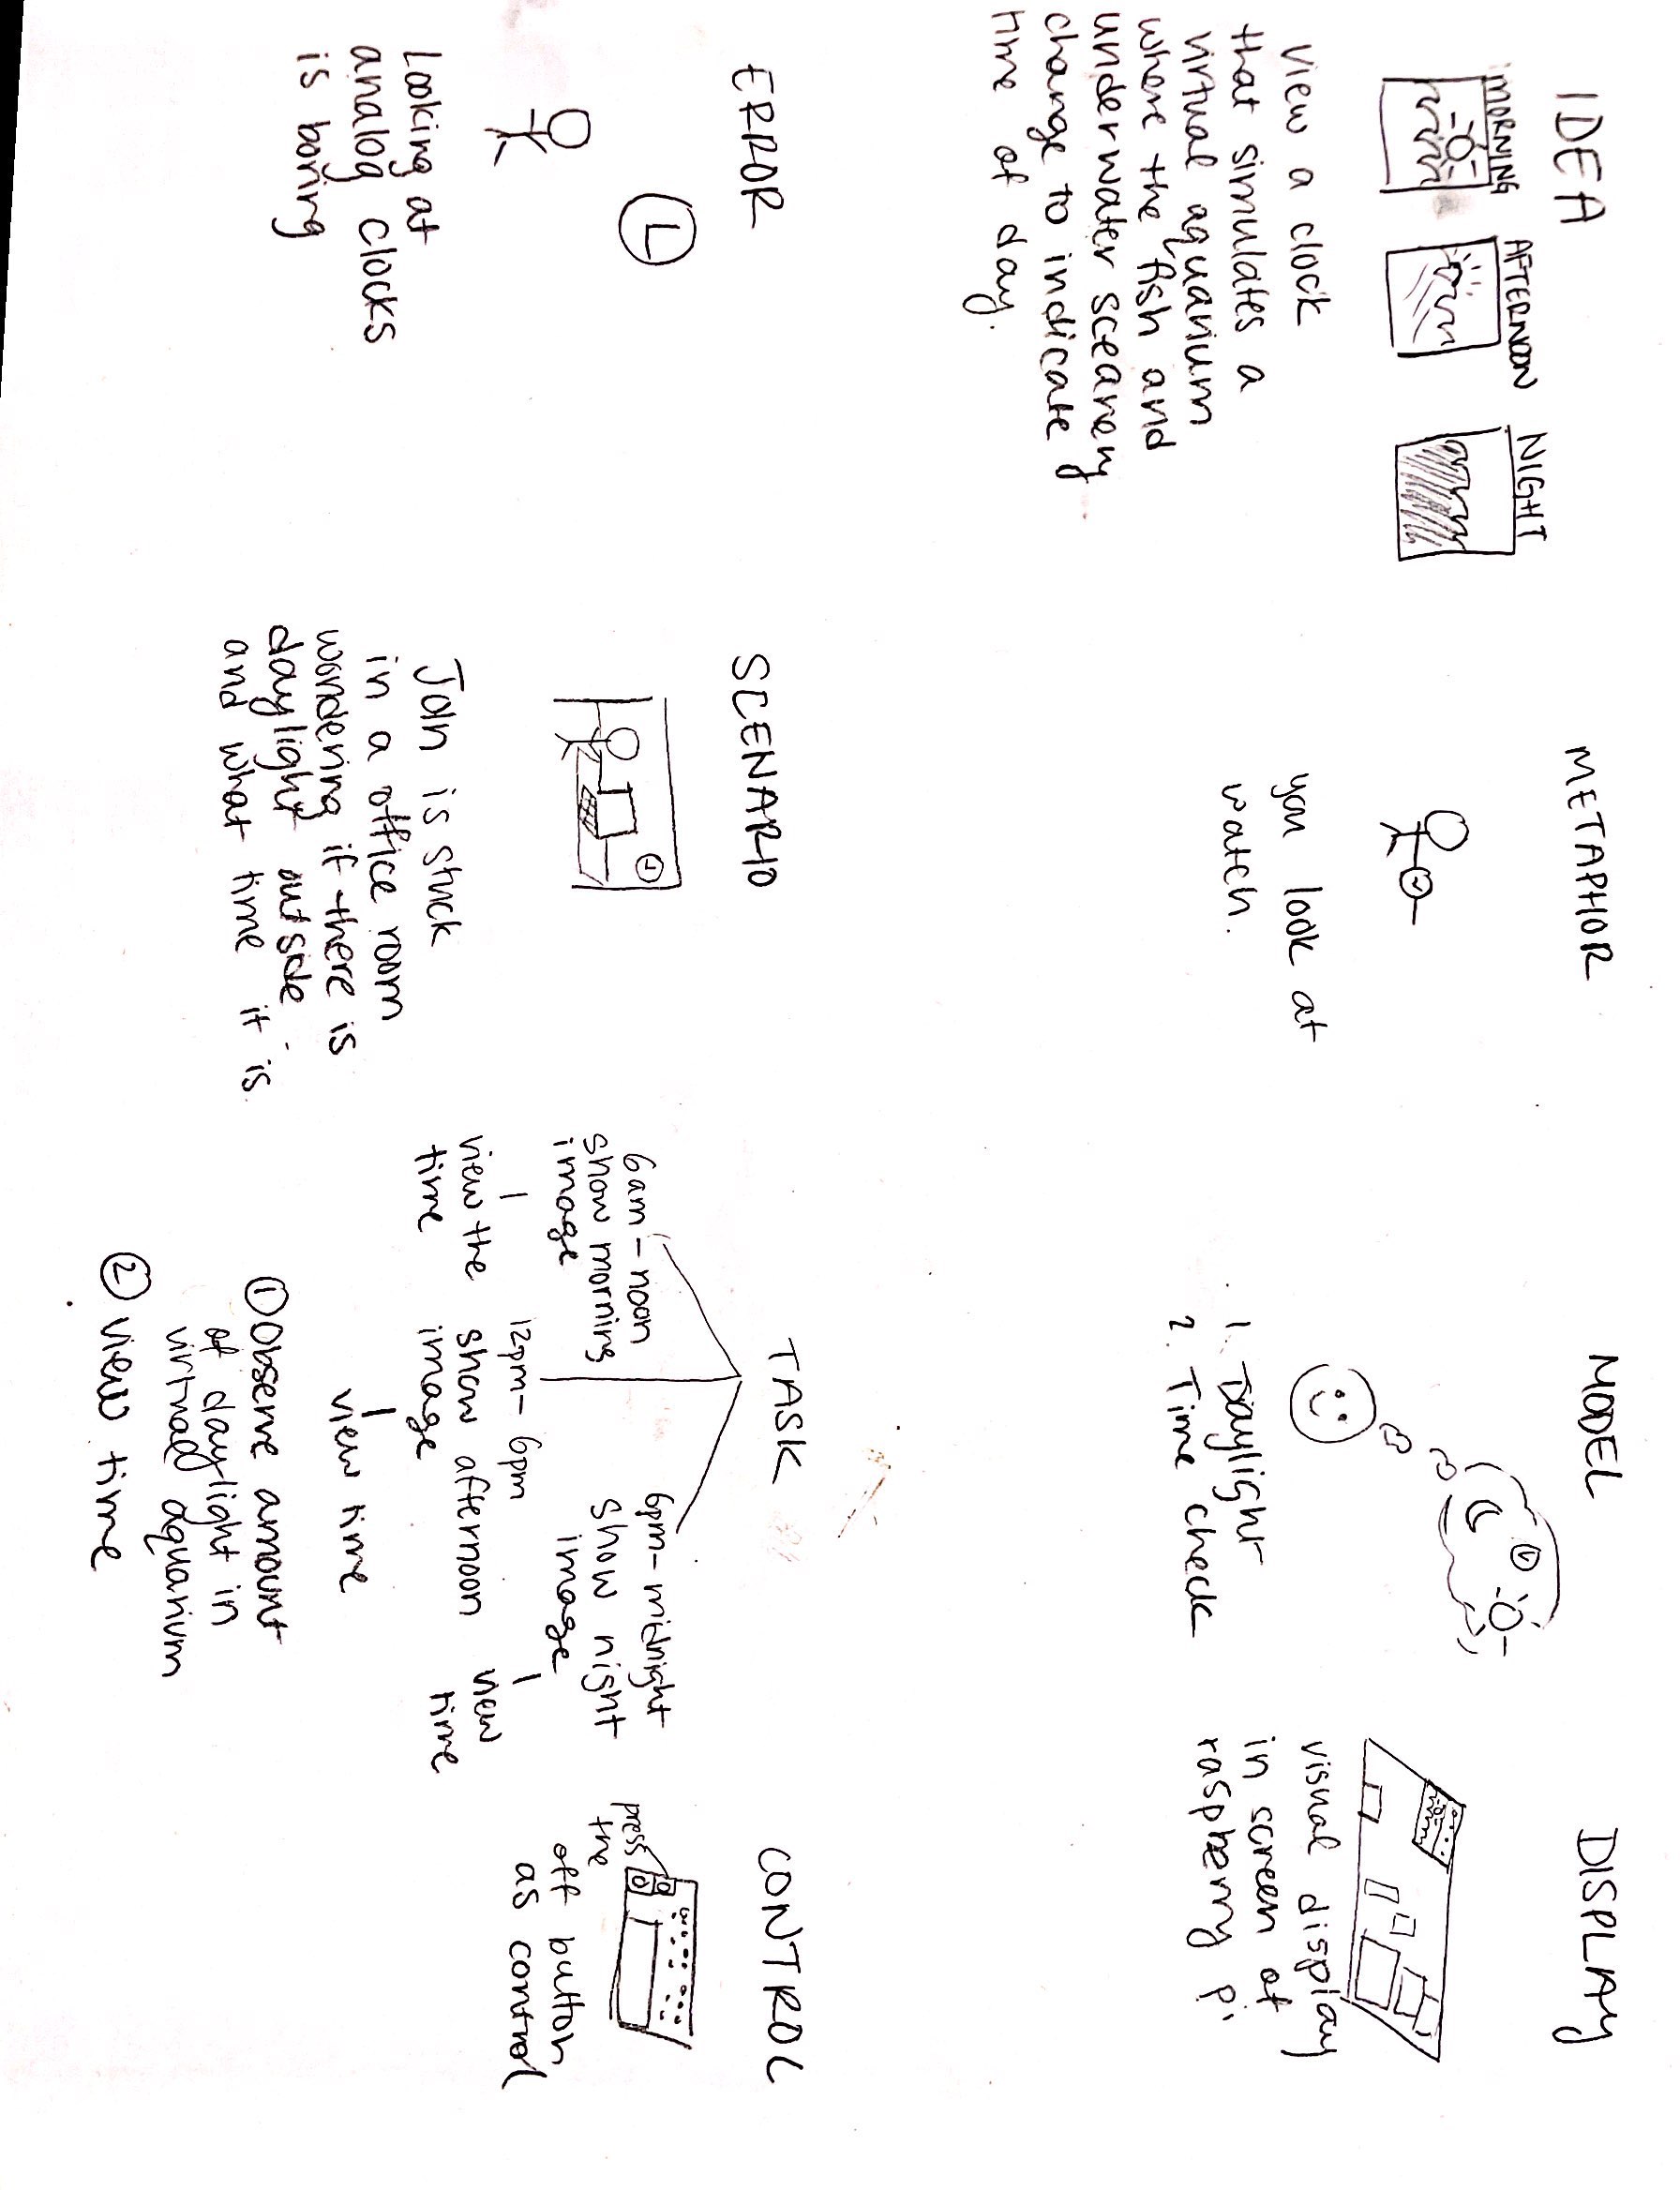 IDEA
MORNING
AFTERNOON
NIGHT
View a clock
that simulates a
virtual aquarium
where the fish and
underwater sceanery
change to indicate
time of day.
METAPHOR
you look at
watch.
MODEL
1. Daylight
2. Time check
DISPLAY
visual display
in screen of
raspberry pi
ERROR
Looking at
analog clocks
is boring
SCENARIO
John is stuck
in a office room
wondering if there is
daylight outside
and what time it is.
TASK
6am - noon
show morning
image
view the
time
12pm - 6pm
show afternoon
image
view time
6pm - midnight
show night
image
view
time
① Observe amount
of daylight in
virtual aquarium
② view time
CONTROL
press
the
off button
as control